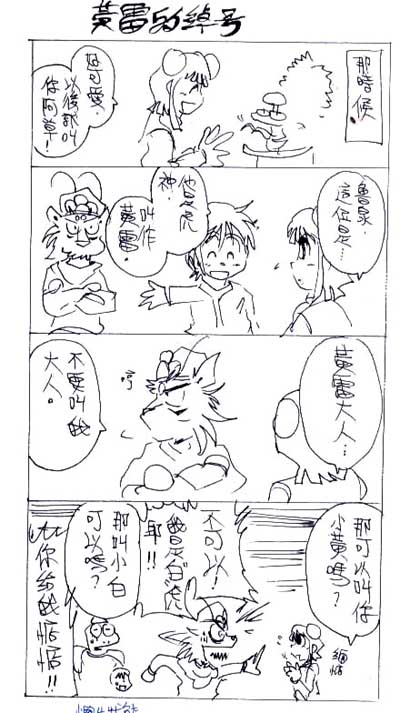 黃雷的綽号
那時候
好可愛.
以後都叫
你阿草!
魯泉.
這位是…
他是虎
神.
叫作
黃雷.
黃雷大人…
哼
不要叫我
大人。
那可以叫你
小黃嗎?
緬恬
不可以!
我是白虎
耶!!
那叫小白
可以嗎?
你給我恬恬!!